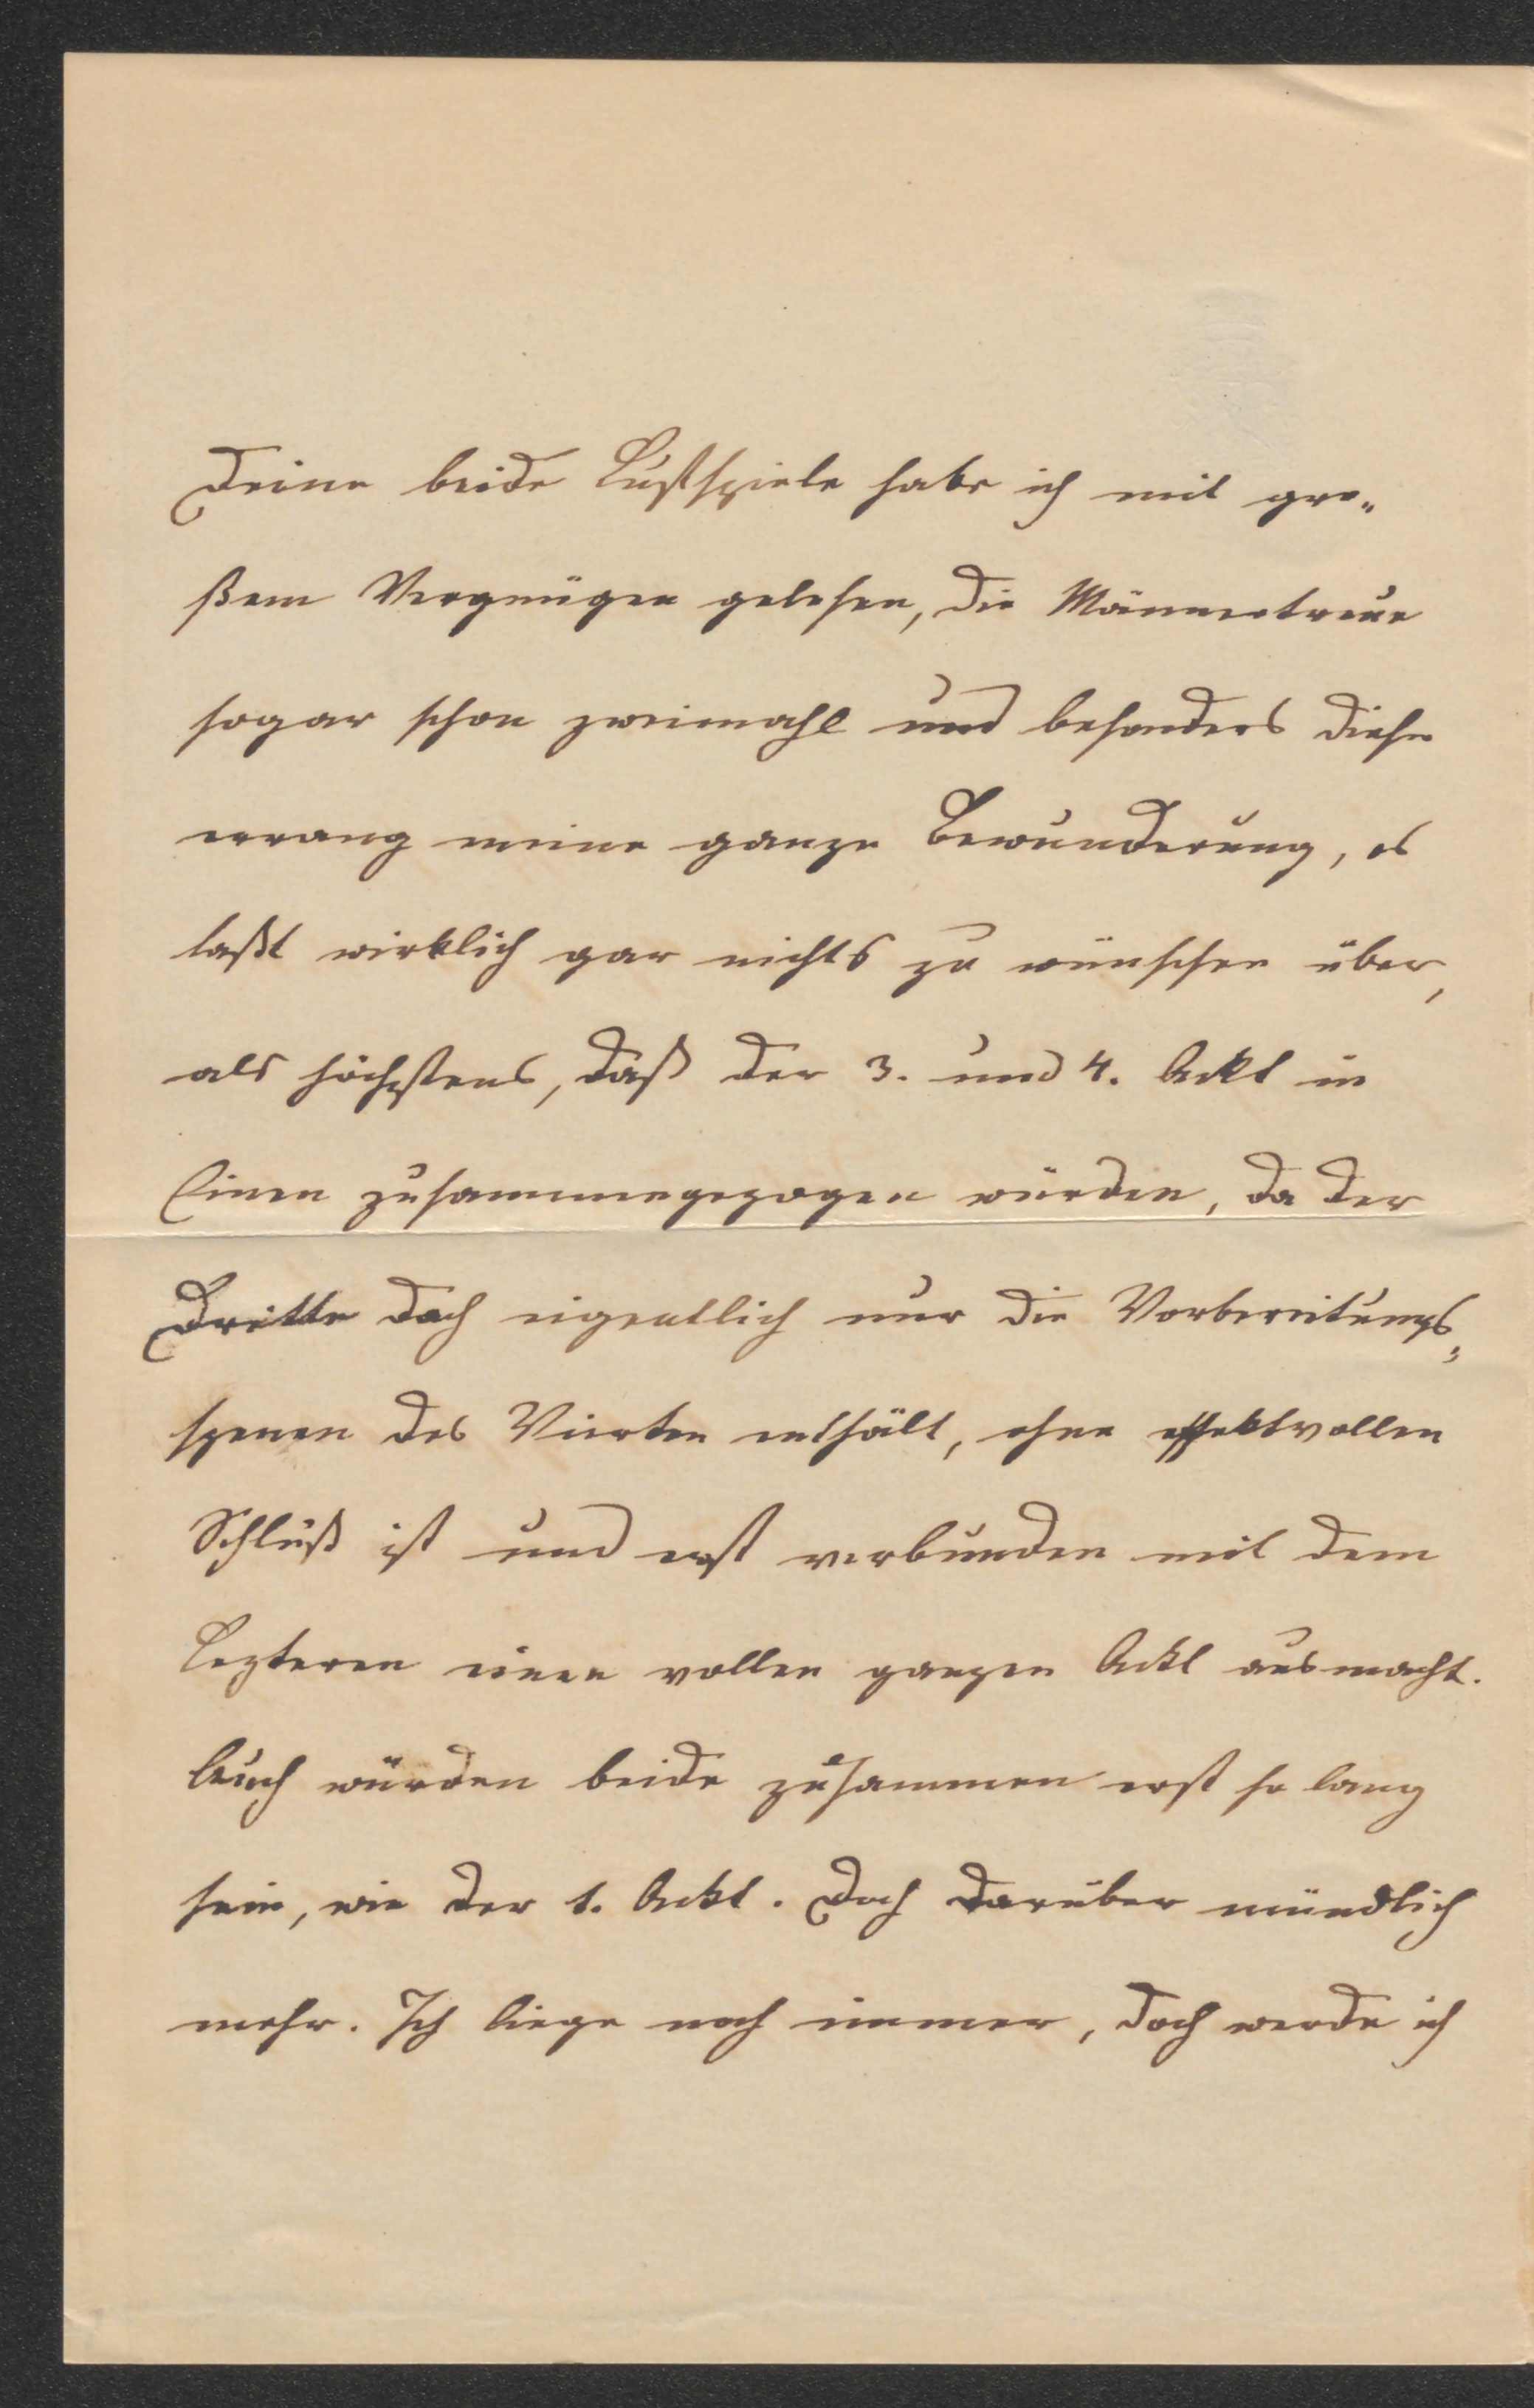 Deine beide Lustspiele habe ich mit gro„
ßem Vergnügen gelesen, die Männertreue
sogar schon zweimahl und besonders diese
errang meine ganze Bewunderung, es
laßt wirklich gar nichts zu wünschen über,
als höchstens, daß der 3. und 4. Ackt in
Einen zusammengezogen würden, da der
Dritte doch eigentlich nur die Vorbereitungs„
szenen des Vierten enthält, ohne effektvollen
Schluß ist und erst verbunden mit dem
Lezteren einen vollen ganzen Ackt ausmacht.
Auch würden beide zusammen erst so lang
sein, wie der 1. Ackt. Doch darüber mündlich
mehr. Ich liege noch immer, doch werde ich